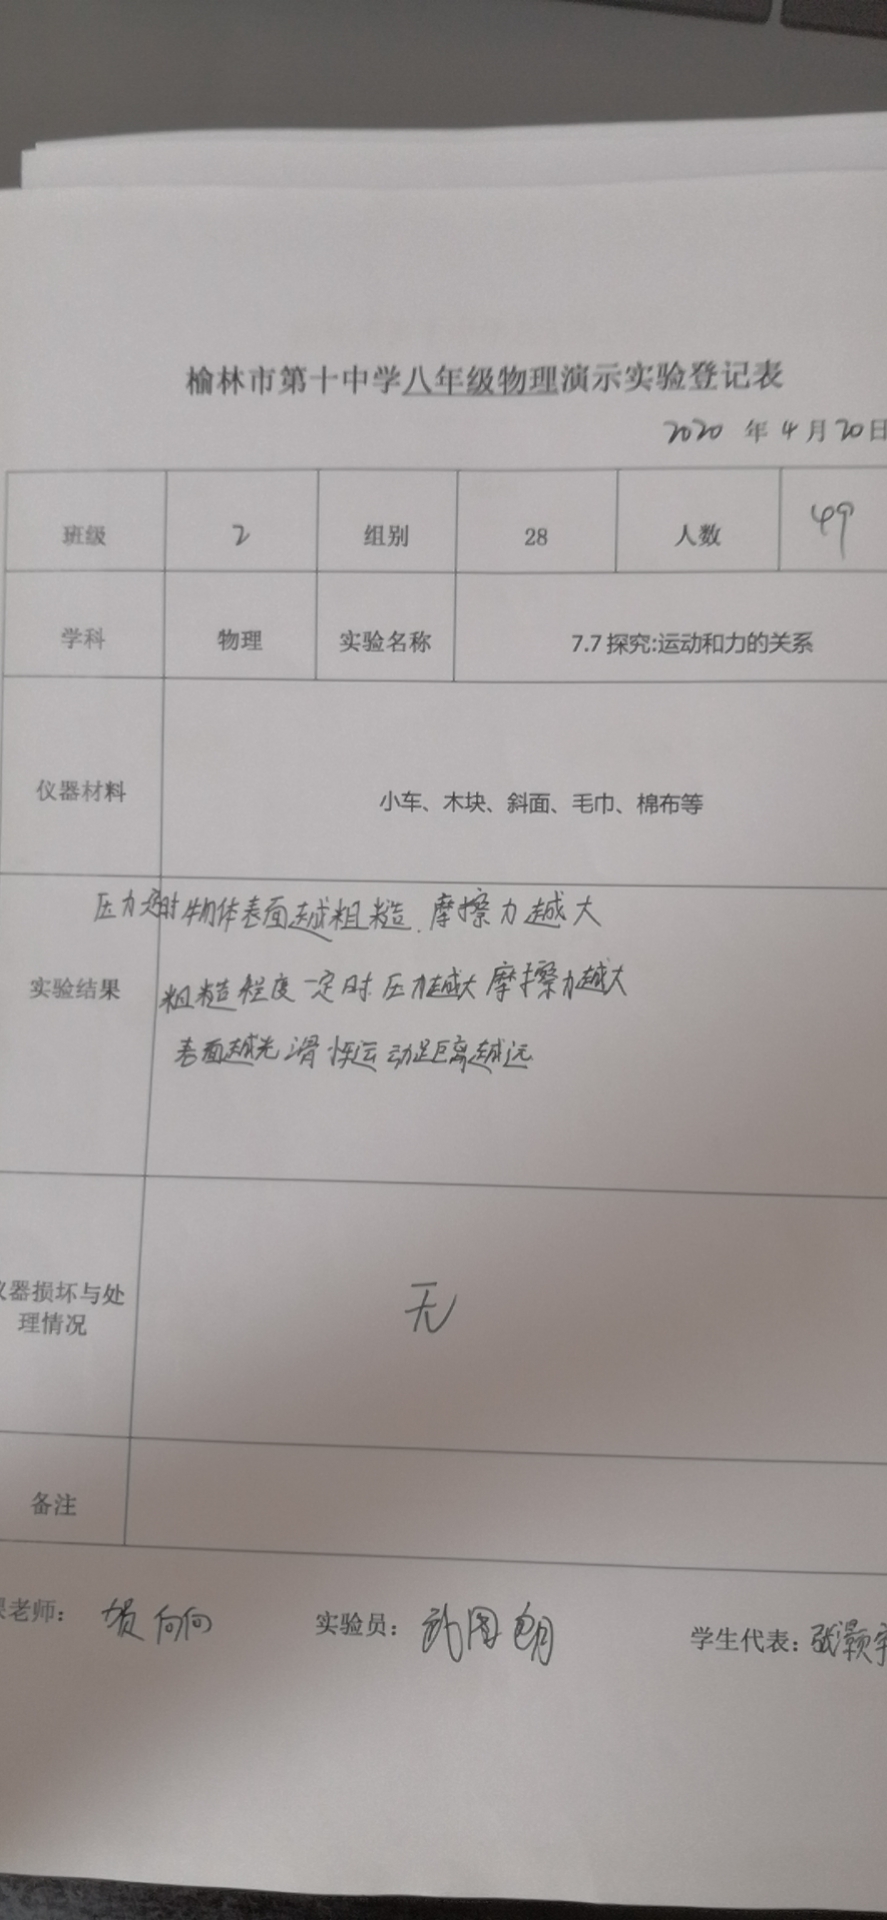 榆林市第十中学八年级物理演示实验登记表
2020 年 4 月 20 日
班级 2 组别 28 人数 49
学科 物理 实验名称 7.7 探究:运动和力的关系
仪器材料 小车、木块、斜面、毛巾、棉布等
压力定时物体表面越粗糙.摩擦力越大
实验结果 粗糙程度一定时 压力越大 摩擦力越大
表面越光滑 运动距离越远
仪器损坏与处
理情况
无
备注
课老师: 贺向向 实验员: 学生代表: 张颢宇